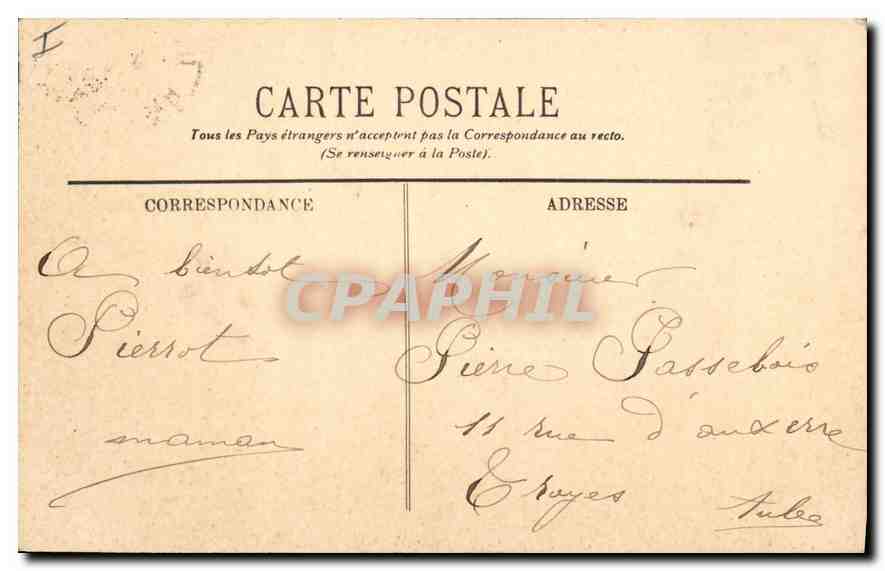 I
CARTE POSTALE
Tous les Pays étrangers n'acceptent pas la Correspondance au recto.
(Se renseigner à la Poste).
CORRESPONDANCE
A bientot
Pierrot
maman
ADRESSE
Monsieur
Pierre Passebois
11 rue d'auxerre
Troyes
Aube
CPAPHIL